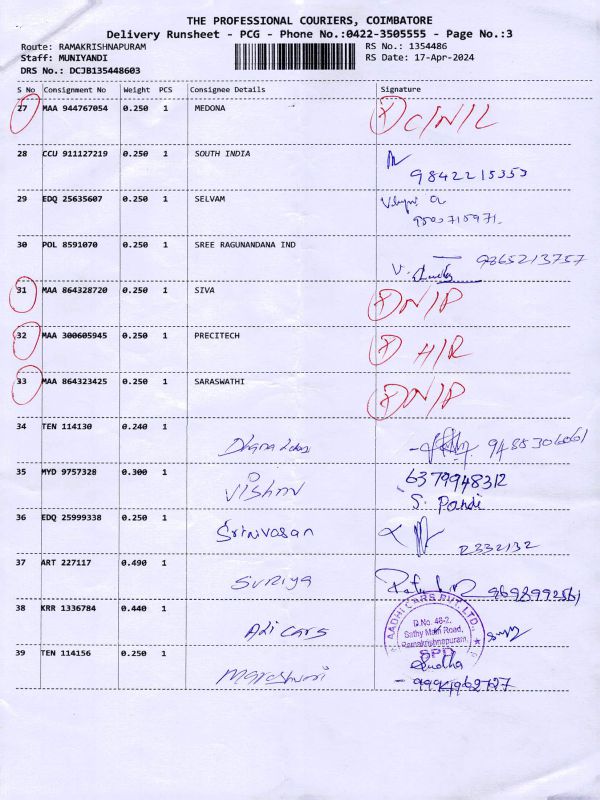 THE PROFESSIONAL COURIERS, COIMBATORE
Delivery Runsheet - PCG - Phone No.:0422-3505555 - Page No.:3
Route: RAMAKRISHNAPURAM RS No.: 1354486
Staff: MUNIYANDI RS Date: 17-Apr-2024
DRS No.: DCJB135448603
S No Consignment No Weight PCS Consignee Details Signature
27 MAA 944767054 0.250 1 MEDONA C/N/L
28 CCU 911127219 0.250 1 SOUTH INDIA
9842215353
29 EDQ 25635607 0.250 1 SELVAM
30 POL 8591070 0.250 1 SREE RAGUNANDANA IND
9865213757
31 MAA 864328720 0.250 1 SIVA D/N/P
32 MAA 300605945 0.250 1 PRECITECH H/R
33 MAA 864323425 0.250 1 SARASWATHI D/N/P
34 TEN 114130 0.240 1
9488306061
35 MYD 9757328 0.300 1 6379948312
Vishnu S. Pandi
36 EDQ 25999338 0.250 1 Srinivasan
37 ART 227117 0.490 1
Suriya 9698992561
38 KRR 1336784 0.440 1
Adi cars
AADHI CARS PVT. LTD.,
D.No. 46-2,
Sathy Main Road,
Ramakrishnapuram,
39 TEN 114156 0.250 1 Sudha
Mageshwari 9994962727